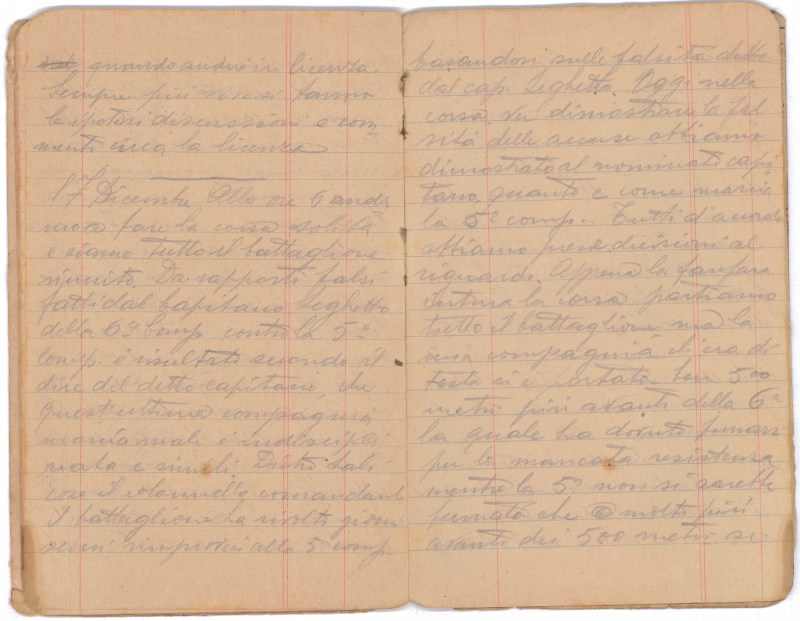 quando andrò in licenza.
Sempre più vivaci fanno
le ipotesi discussioni e com
menti circa la licenza
Il 7 Dicembre Alle ore 6 andia
mo a fare la corsa solita
e siamo tutto il battaglione
riunito. Da rapporti falsi
fatti dal Capitano Seghetto
della 6ª Comp. contro la 5ª
Comp. è risultato secondo il
dire del detto capitano che
quest'ultima compagnia
marcia male e indiscipli
nata e simili. Dietro tali
cose il colonnello comandante
il battaglione ha rivolto giorni
scorsi rimproveri alla 5ª comp.
basandosi sulle falsità dette
dal cap. Seghetto. Oggi nella
corsa per dimostrare la fal
sità delle accuse abbiamo
dimostrato al nominato capi
tano quanto e come marcia
la 5ª comp. Tutti d'accordo
abbiamo prese decisioni al
riguardo. Appena la fanfara
intuona la corsa partiamo
tutto il battaglione ma la
mia compagnia ch'era di
testa si è portata ben 500
metri più avanti della 6ª
la quale ha dovuto fermarsi
per la mancata resistenza
mentre la 5ª non si sarebbe
fermata che molto più
avanti dei 500 metri se